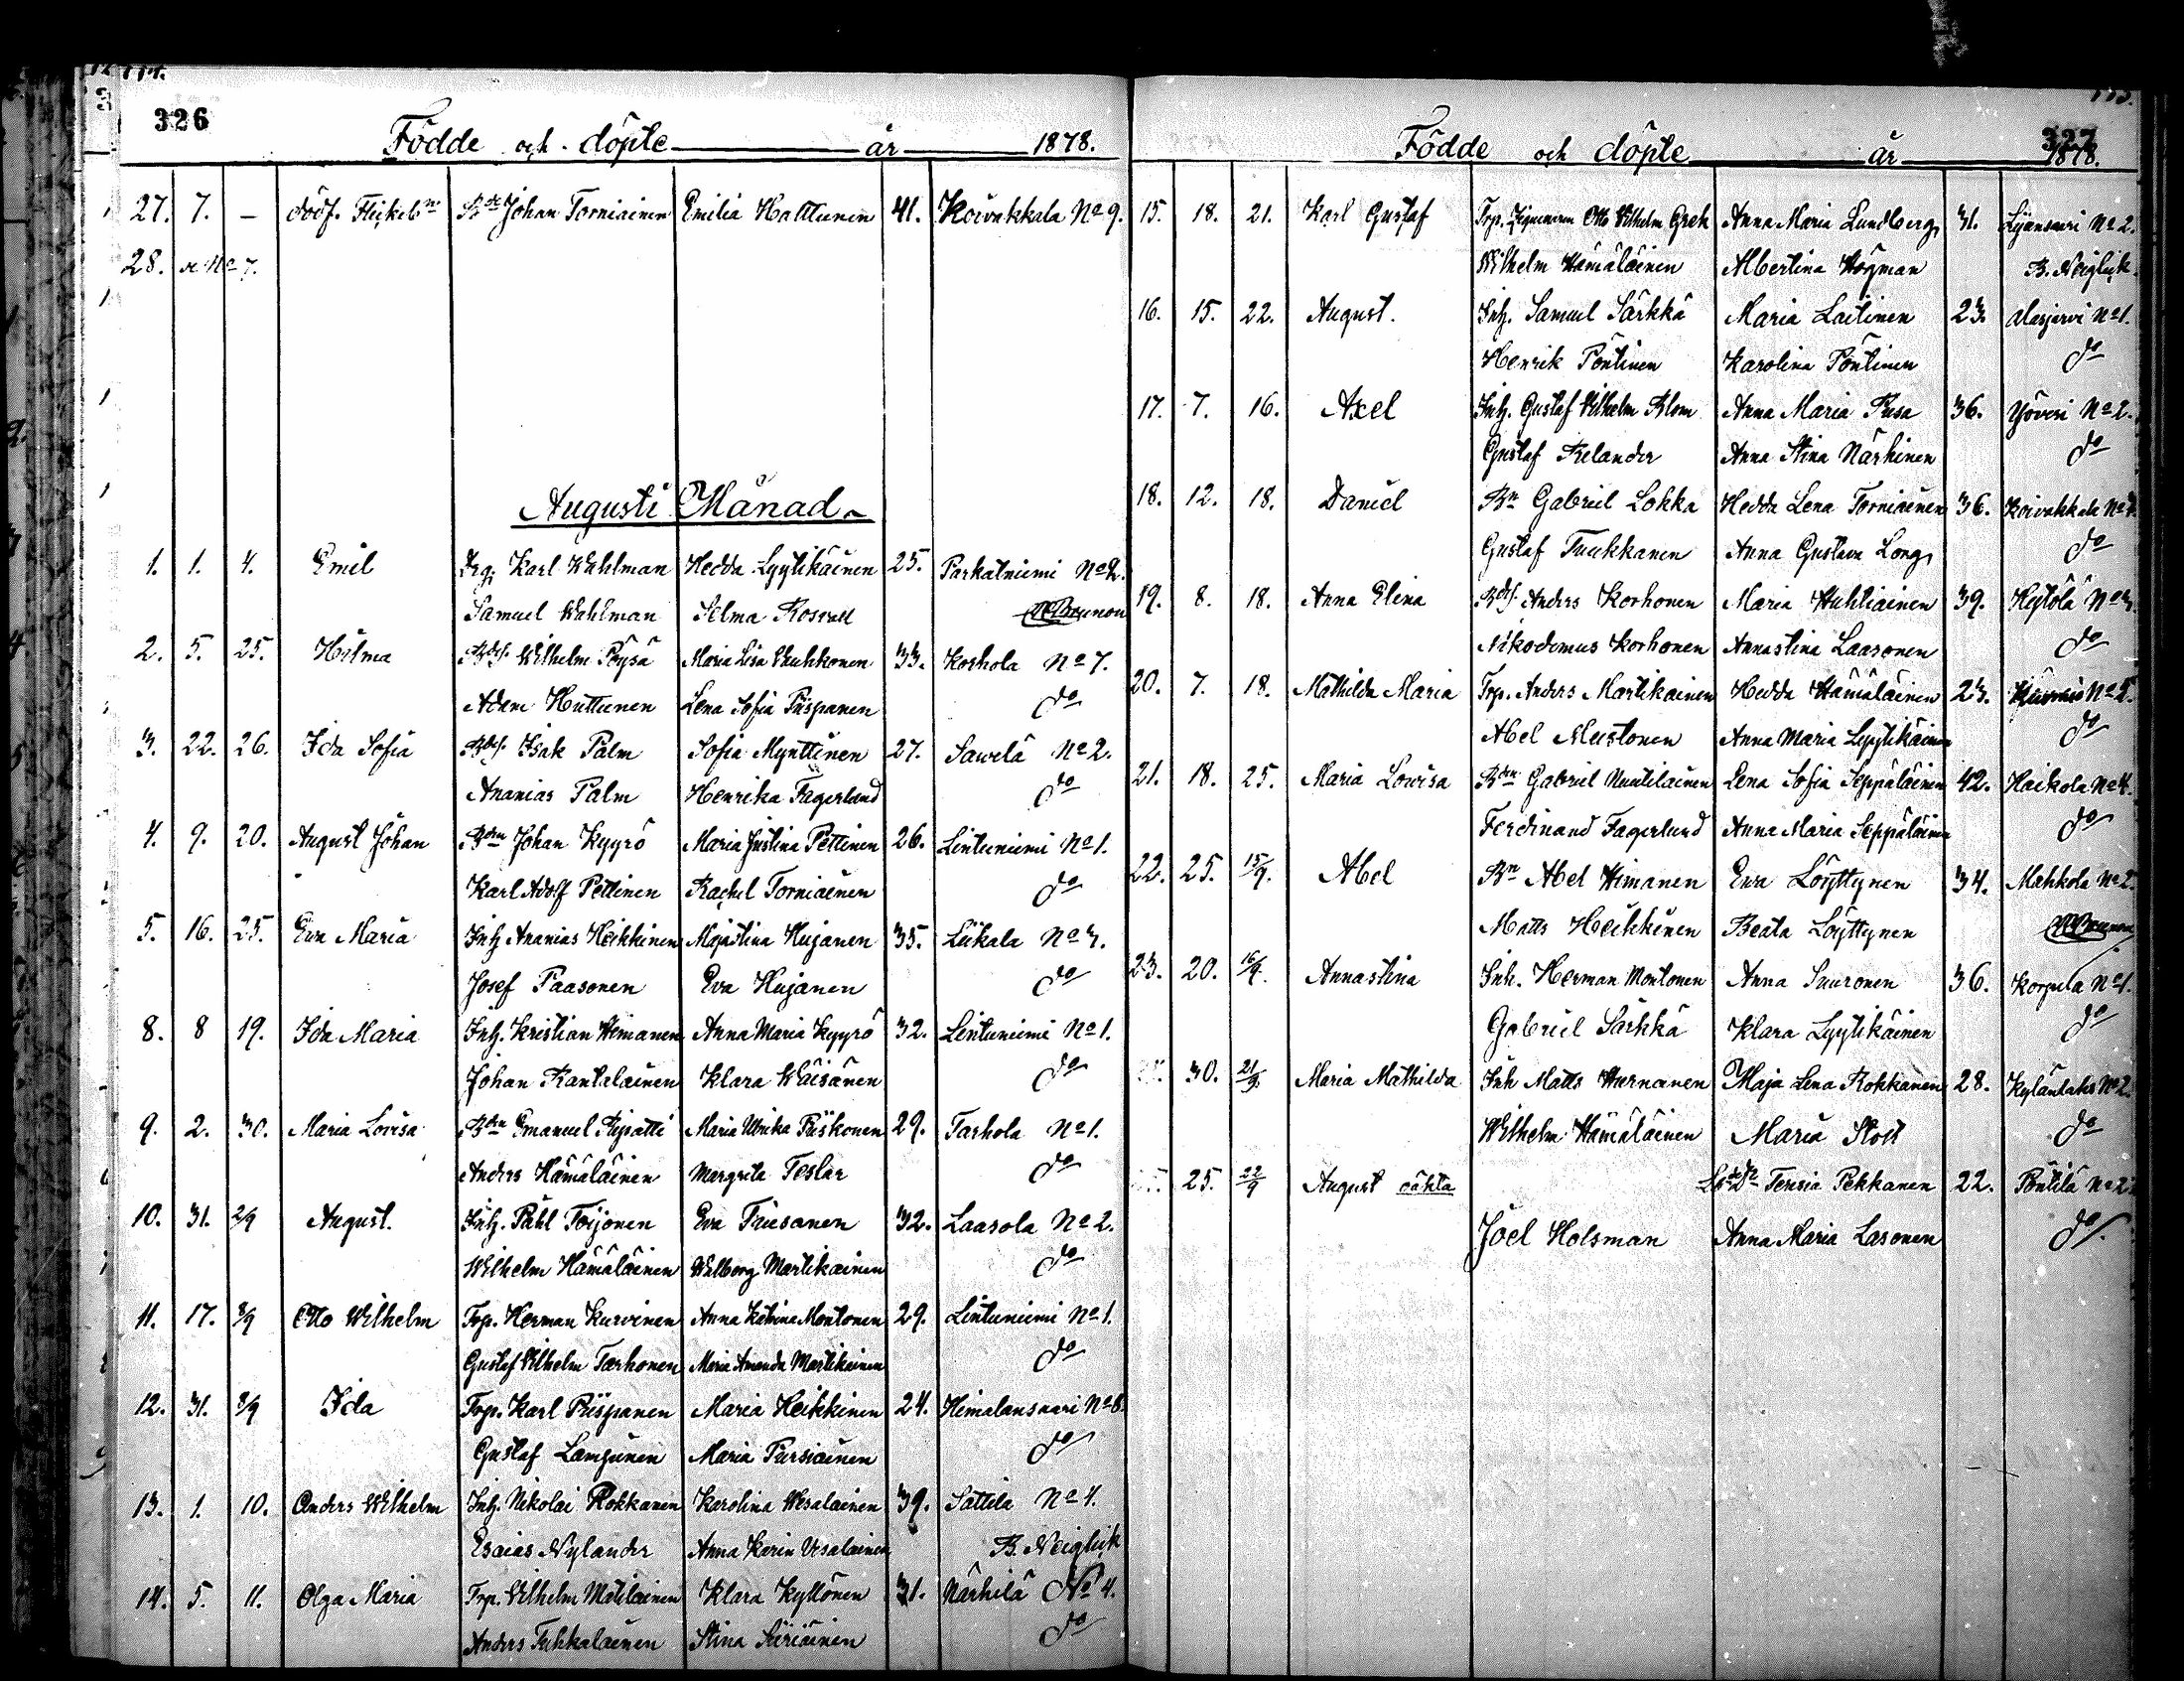 326
Födde och döpte år 1878.
27. 7. — dödf. Flickebn Johan Torniainen Emilia Halttunen 41. Koivakkala No 9.
28. se No 7.
Augusti Månad
1. 1. 4. Emil Karl Wahlman Hedda Lyytikäinen 25. Parkatniemi No 2.
Samuel Wahlman Selma Rosvall
2. 5. 25. Hilma Wilhelm Pöysä Maria Lisa Wuhkonen 33. Korhola No 7.
Adam Huttunen Lena Sofia Piispanen do
3. 22. 26. Ida Sofia Isak Palm Sofia Mynttinen 27. Sawela No 2.
Ananias Palm Henrika Fagerlund do
4. 9. 20. August Johan Johan Kyyrö Maria Justina Pettinen 26. Lintuniemi No 1.
Karl Adolf Pettinen Rachel Torniainen do
5. 16. 25. Eva Maria Inh Ananias Heikkinen Majastina Hujanen 35. Liikala No 3.
Josef Paasonen Eva Hujanen do
8. 8 19. Ida Maria Inh. Kristian Himanen Anna Maria Kyyrö 32. Lintuniemi No 1.
Johan Rantalainen Klara Wäisänen do
9. 2. 30. Maria Lovisa Emanuel Maria Ulrika Piiskonen 29. Tarhola No 1.
Anders Hämäläinen Margreta Teslar do
10. 31. 2/9 August. Inh. Påhl Toijonen Eva Triesanen 32. Laasola No 2.
Wilhelm Hämäläinen Walborg Martikainen do
11. 17. 8/9 Otto Wilhelm Trp. Herman Kurvinen Anna Katrina Montonen 29. Lintuniemi No 1.
Gustaf Wilhelm Tarhonen Maria Amanda Martikainen do
12. 31. 8/9 Ida Trp. Karl Piispanen Maria Heikkinen 24. Himalansaari No 8.
Gustaf Lampinen Maria Pursiainen do
13. 1. 10. Anders Wilhelm Inh. Nikolai Rokkanen Karolina Wesalainen 39. Sattila No 4.
Esaias Nylander Anna Karin Vesalainen B. Neiglick
14. 5. 11. Olga Maria Trp. Wilhelm Matilainen Klara Kyllönen 31. Närhilä No 4.
Anders Tuhkalainen Stina Siiriäinen do
327
Födde och döpte år 1878.
15. 18. 21. Karl Gustaf Trp. Otto Wilhelm Grek Anna Maria Lundberg 31. Lyänsaari No 2.
Wilhelm Hämäläinen Albertina Högman B. Neiglick.
16. 15. 22. August. Inh. Samuel Särkkä Maria Laitinen 23. Alasjarvi No 1.
Henrik Pöntinen Karolina Pöntinen do
17. 7. 16. Axel Inh. Gustaf Wilhelm Blom Anna Maria Pusa 36. Yöveri No 2.
Gustaf Relander Anna Stina Närhinen do
18. 12. 18. Daniel Bn Gabriel Lokka Hedda Lena Torniainen 36. Koivakkala No 4.
Gustaf Tuukkanen Anna Gustava Long do
19. 8. 18. Anna Elina Anders Korhonen Maria Huhtiainen 39. Heytölä No 3.
Nikodemus Korhonen Annastina Laasonen do
20. 7. 18. Mathilda Maria Trp. Anders Martikainen Hedda Hämäläinen 23. No 2.
Abel Mustonen Anna Maria Lyytikäinen do
21. 18. 25. Maria Lowisa Gabriel Nuutilainen Lena Sofia Seppäläinen 42. Haikola No 4.
Ferdinand Fagerlund Anna Maria Seppäläinen do
22. 25. 15/9. Abel Bn Abel Himanen Ewa Löyttynen 34. Mahkola No 2.
Matts Heikkinen Beata Löyttynen
23. 20. 16/9. Annastina Inh. Herman Montonen Anna Suuronen 36. Korpula No 1.
Gabriel Särkkä Klara Lyytikäinen do
30. 21/9. Maria Mathilda Inh Matts Hurnanen Maja Lena Rokkanen 28. Kyläntaks No 2.
Wilhelm Hämäläinen Maria Stolt do
25. 22/9 August oäkta Teresia Pekkanen 22. Pöntilä No 2.
Joel Holsman Anna Maria Lasonen do.